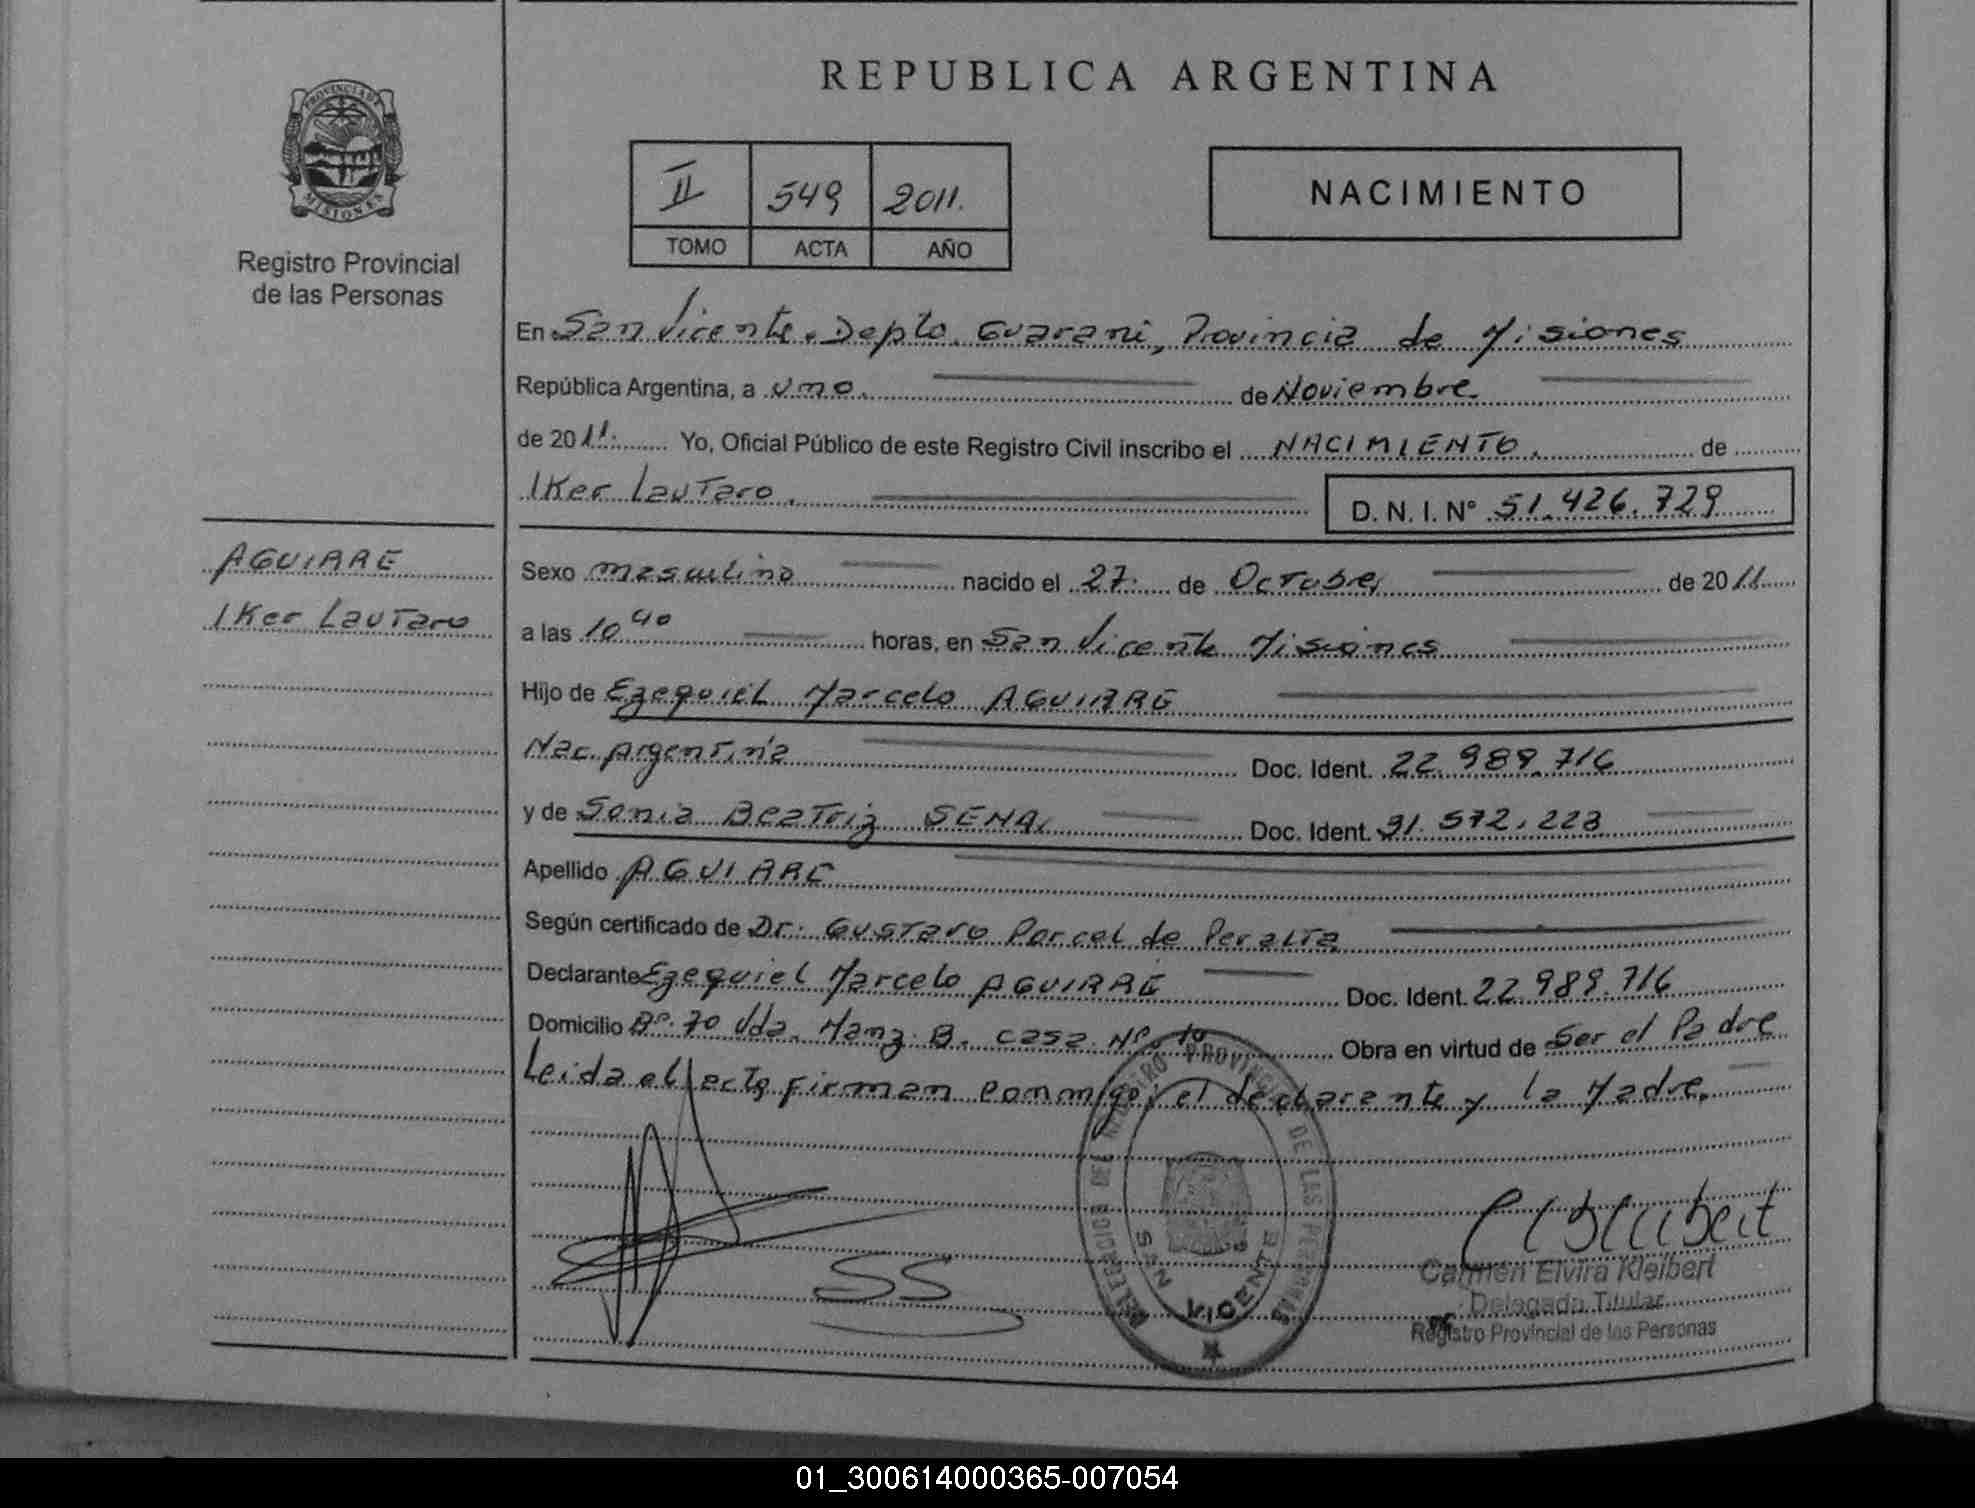 REPUBLICA ARGENTINA
PROVINCIA DE
MISIONES
Registro Provincial
de las Personas
II 549 2011.
TOMO ACTA AÑO
NACIMIENTO
En San Vicente. Depto. Guarani, Provincia de Misiones
República Argentina, a uno. de Noviembre.
de 2011. Yo, Oficial Público de este Registro Civil inscribo el NACIMIENTO. de
Iker Lautaro. D. N. I. N° 51.426.729
AGUIRRE
Iker Lautaro
Sexo masculino nacido el 27. de Octubre, de 2011
a las 10 40 horas, en San Vicente Misiones
Hijo de Ezequiel Marcelo AGUIRRE
Nac. Argentina Doc. Ident. 22.989.716
y de Sonia Beatriz SENA, Doc. Ident. 31.572.223
Apellido AGUIRRE
Según certificado de Dr. Gustavo Porcel de Peralta
Declarante Ezequiel Marcelo AGUIRRE Doc. Ident. 22.989.716
Domicilio B°. 70 Vda. Manz. B. casa N° 10 Obra en virtud de Ser el Padre
Leida el acta firman conmigo, el declarante y la Madre.
REGISTRO PROVINCIAL DE LAS PERSONAS
SAN VICENTE
SS
Carmen Elvira Kleibert
Delegada Titular
Registro Provincial de las Personas
01_300614000365-007054